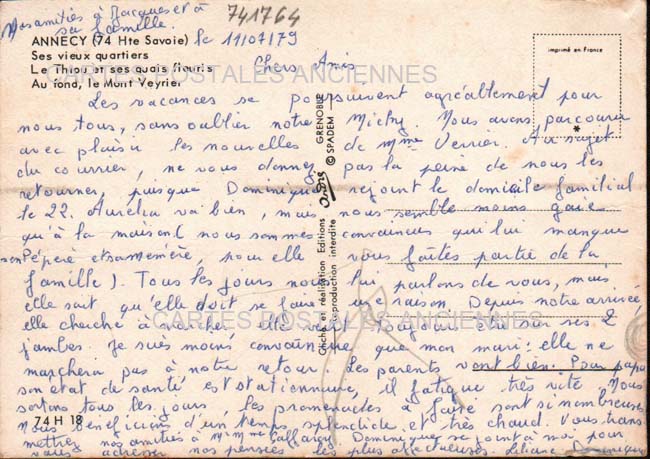 Nos amitiés à Jacques et à
sa famille.
741764
ANNECY (74 Hte Savoie)
le 11/07/79
Ses vieux quartiers
Le Thiou et ses quais fleuris
Au fond, le Mont Veyrier
imprimé en France
Chers Amis
CARTES POSTALES ANCIENNES
Les vacances se poursuivent agréablement pour
nous tous, sans oublier notre Michy. Nous avons parcouru
avec plaisir les nouvelles de Mme Verrier. Au sujet
du courrier, ne vous donnez pas la peine de nous les
retourner, puisque Dominique rejoint le domicile familial
le 22. Aurélia va bien, mais nous semble moins gaie
qu'à la maison. nous sommes convaincus qu'il lui manque
son Pépère et sa mémère, pour elle vous faîtes partie de la
famille). Tous les jours nous lui parlons de vous, mais
elle sait qu'elle doit se faire une raison. Depuis notre arrivée,
elle cherche à marcher, elle veut toujours être sur ses 2
jambes. Je suis moins convaincue que mon mari: elle ne
marchera pas à notre retour. Les parents vont bien. Pour papa
son état de santé est stationnaire, il fatigue très vite. Nous
sortons tous les jours, les promenades à faire sont si nombreuses.
Nous bénéficions d'un temps splendide et très chaud. Vous trans
mettrez nos amitiés à Mr Mme Dominique se joint à moi pour
vous adresser nos pensées les plus affectueuses. Liliane Dominique
CARTES POSTALES ANCIENNES
74 H 18
Cliché et réalisation Editions
Reproduction interdite
GRENOBLE
© SPADEM